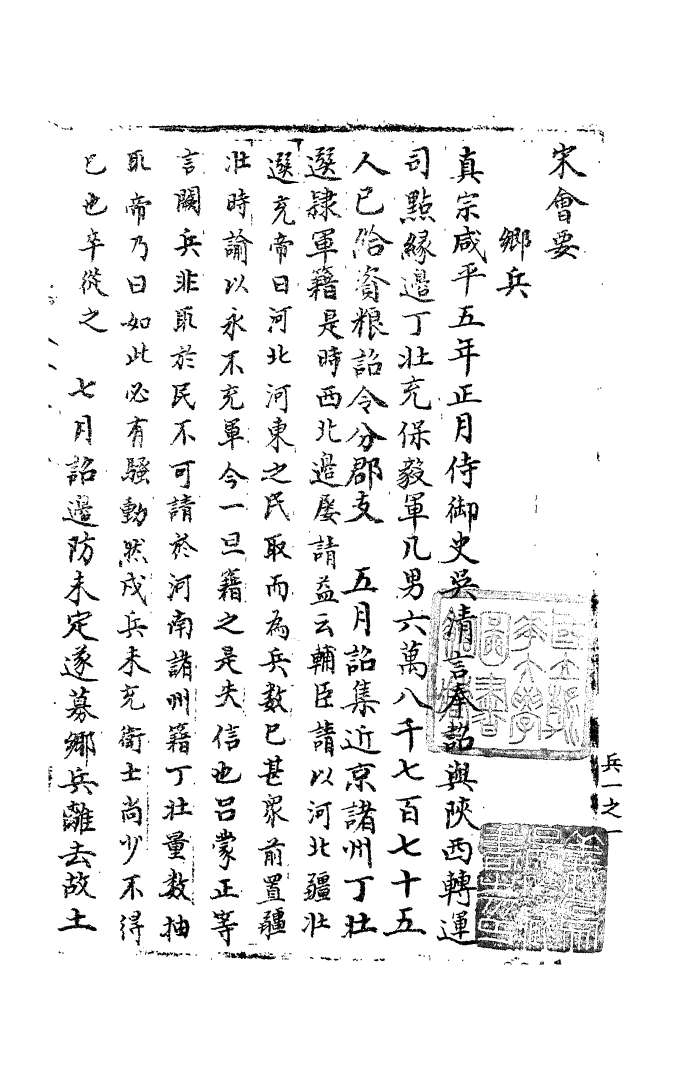 宋會要
鄉兵
真宗咸平五年正月侍御史吳蒨言奉詔與陝西轉運
司點緣邊丁壯充保毅軍凡男六萬八千七百七十五
人已給資粮詔令分郡支　五月詔集近京諸州丁壯
選隸軍籍是時西北邊屡請益云輔臣請以河北疆壯
選充帝曰河北河東之民取而為兵数已甚衆前置疆
壯時諭以永不充軍今一旦籍之是失信也吕蒙正等
言闕兵非取於民不可請於河南諸州籍丁壯量数抽
取帝乃曰如此必有騷動然戍兵未充衛士尚少不得
已也卒從之　七月詔邊防未定遂募鄉兵離去故土
兵一之一